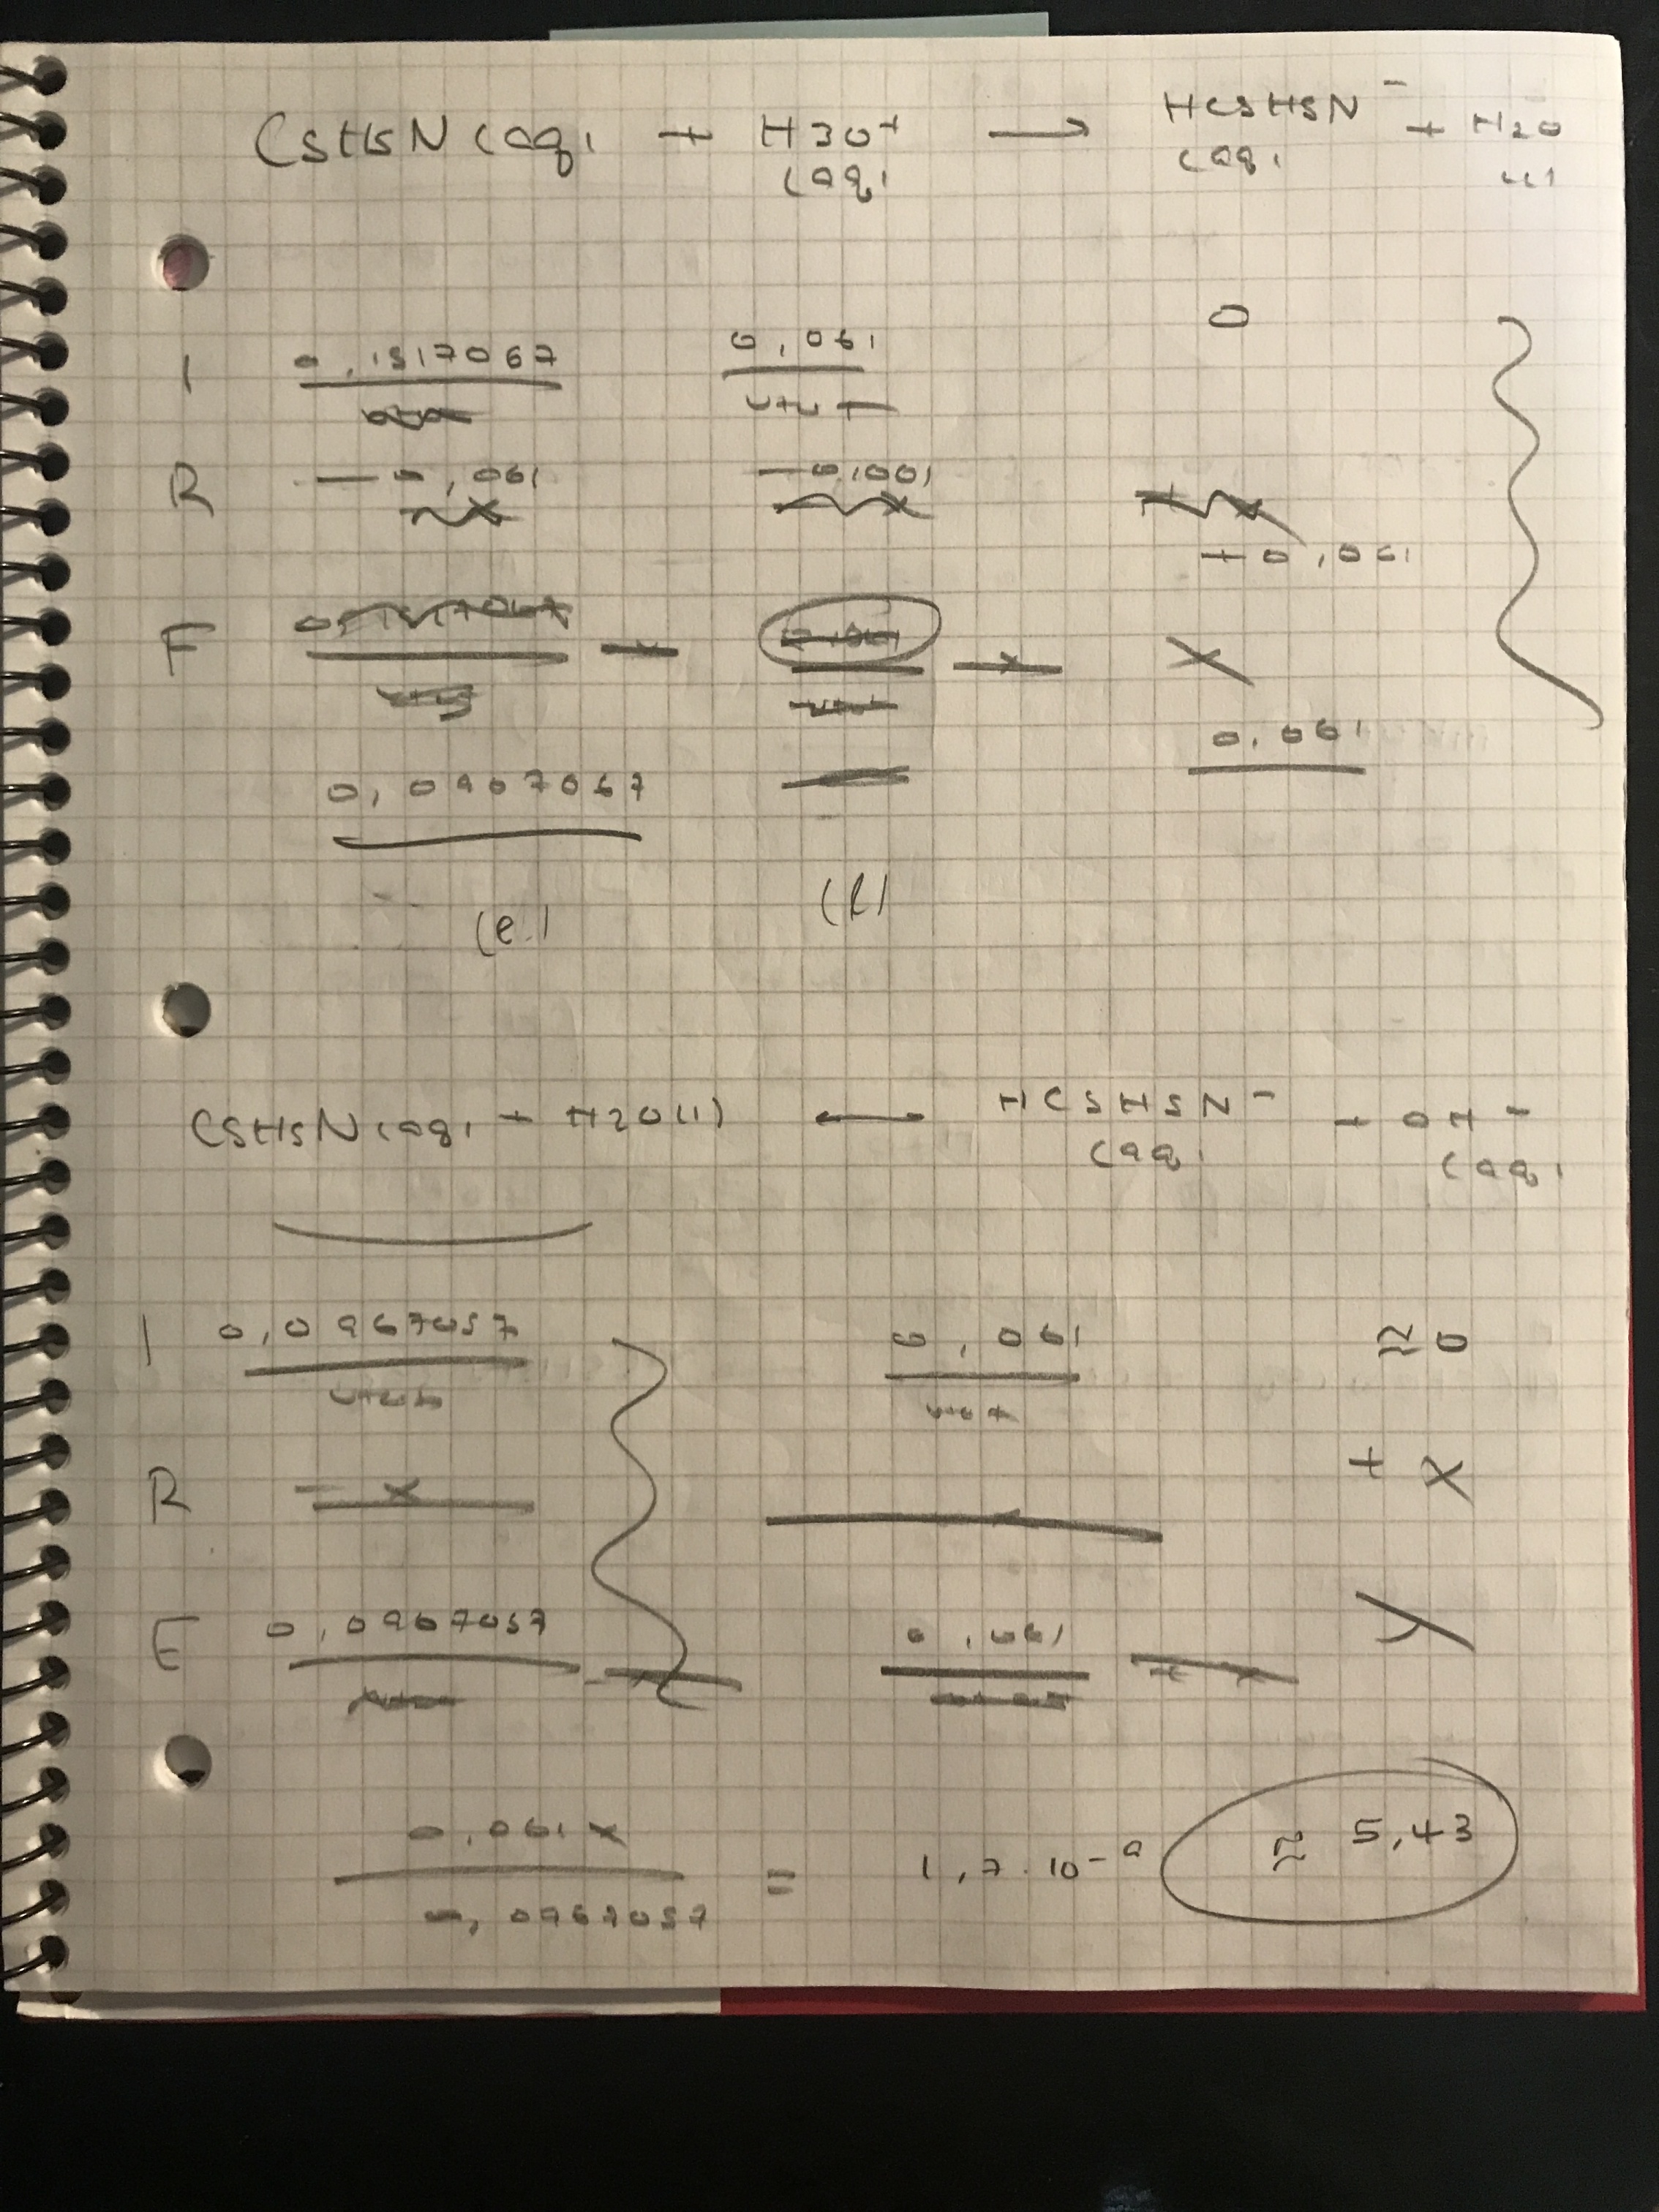 C5H5N (aq) + H3O+ (aq) → HC5H5N- (aq) + H2O (l)
0
I 0,1517067 0,061
R - 0,061 - 0,001
+ 0,061
F
0,061
0,0907067
(e.) (l)
C5H5N (aq) + H2O (l) ↔ HC5H5N- (aq) + OH- (aq)
I 0,0967057 0,061 ≈ 0
R - x + x
E 0,0967057 0,061
0,061 x / 0,0967057 = 1,7 · 10-9 ≈ 5,43